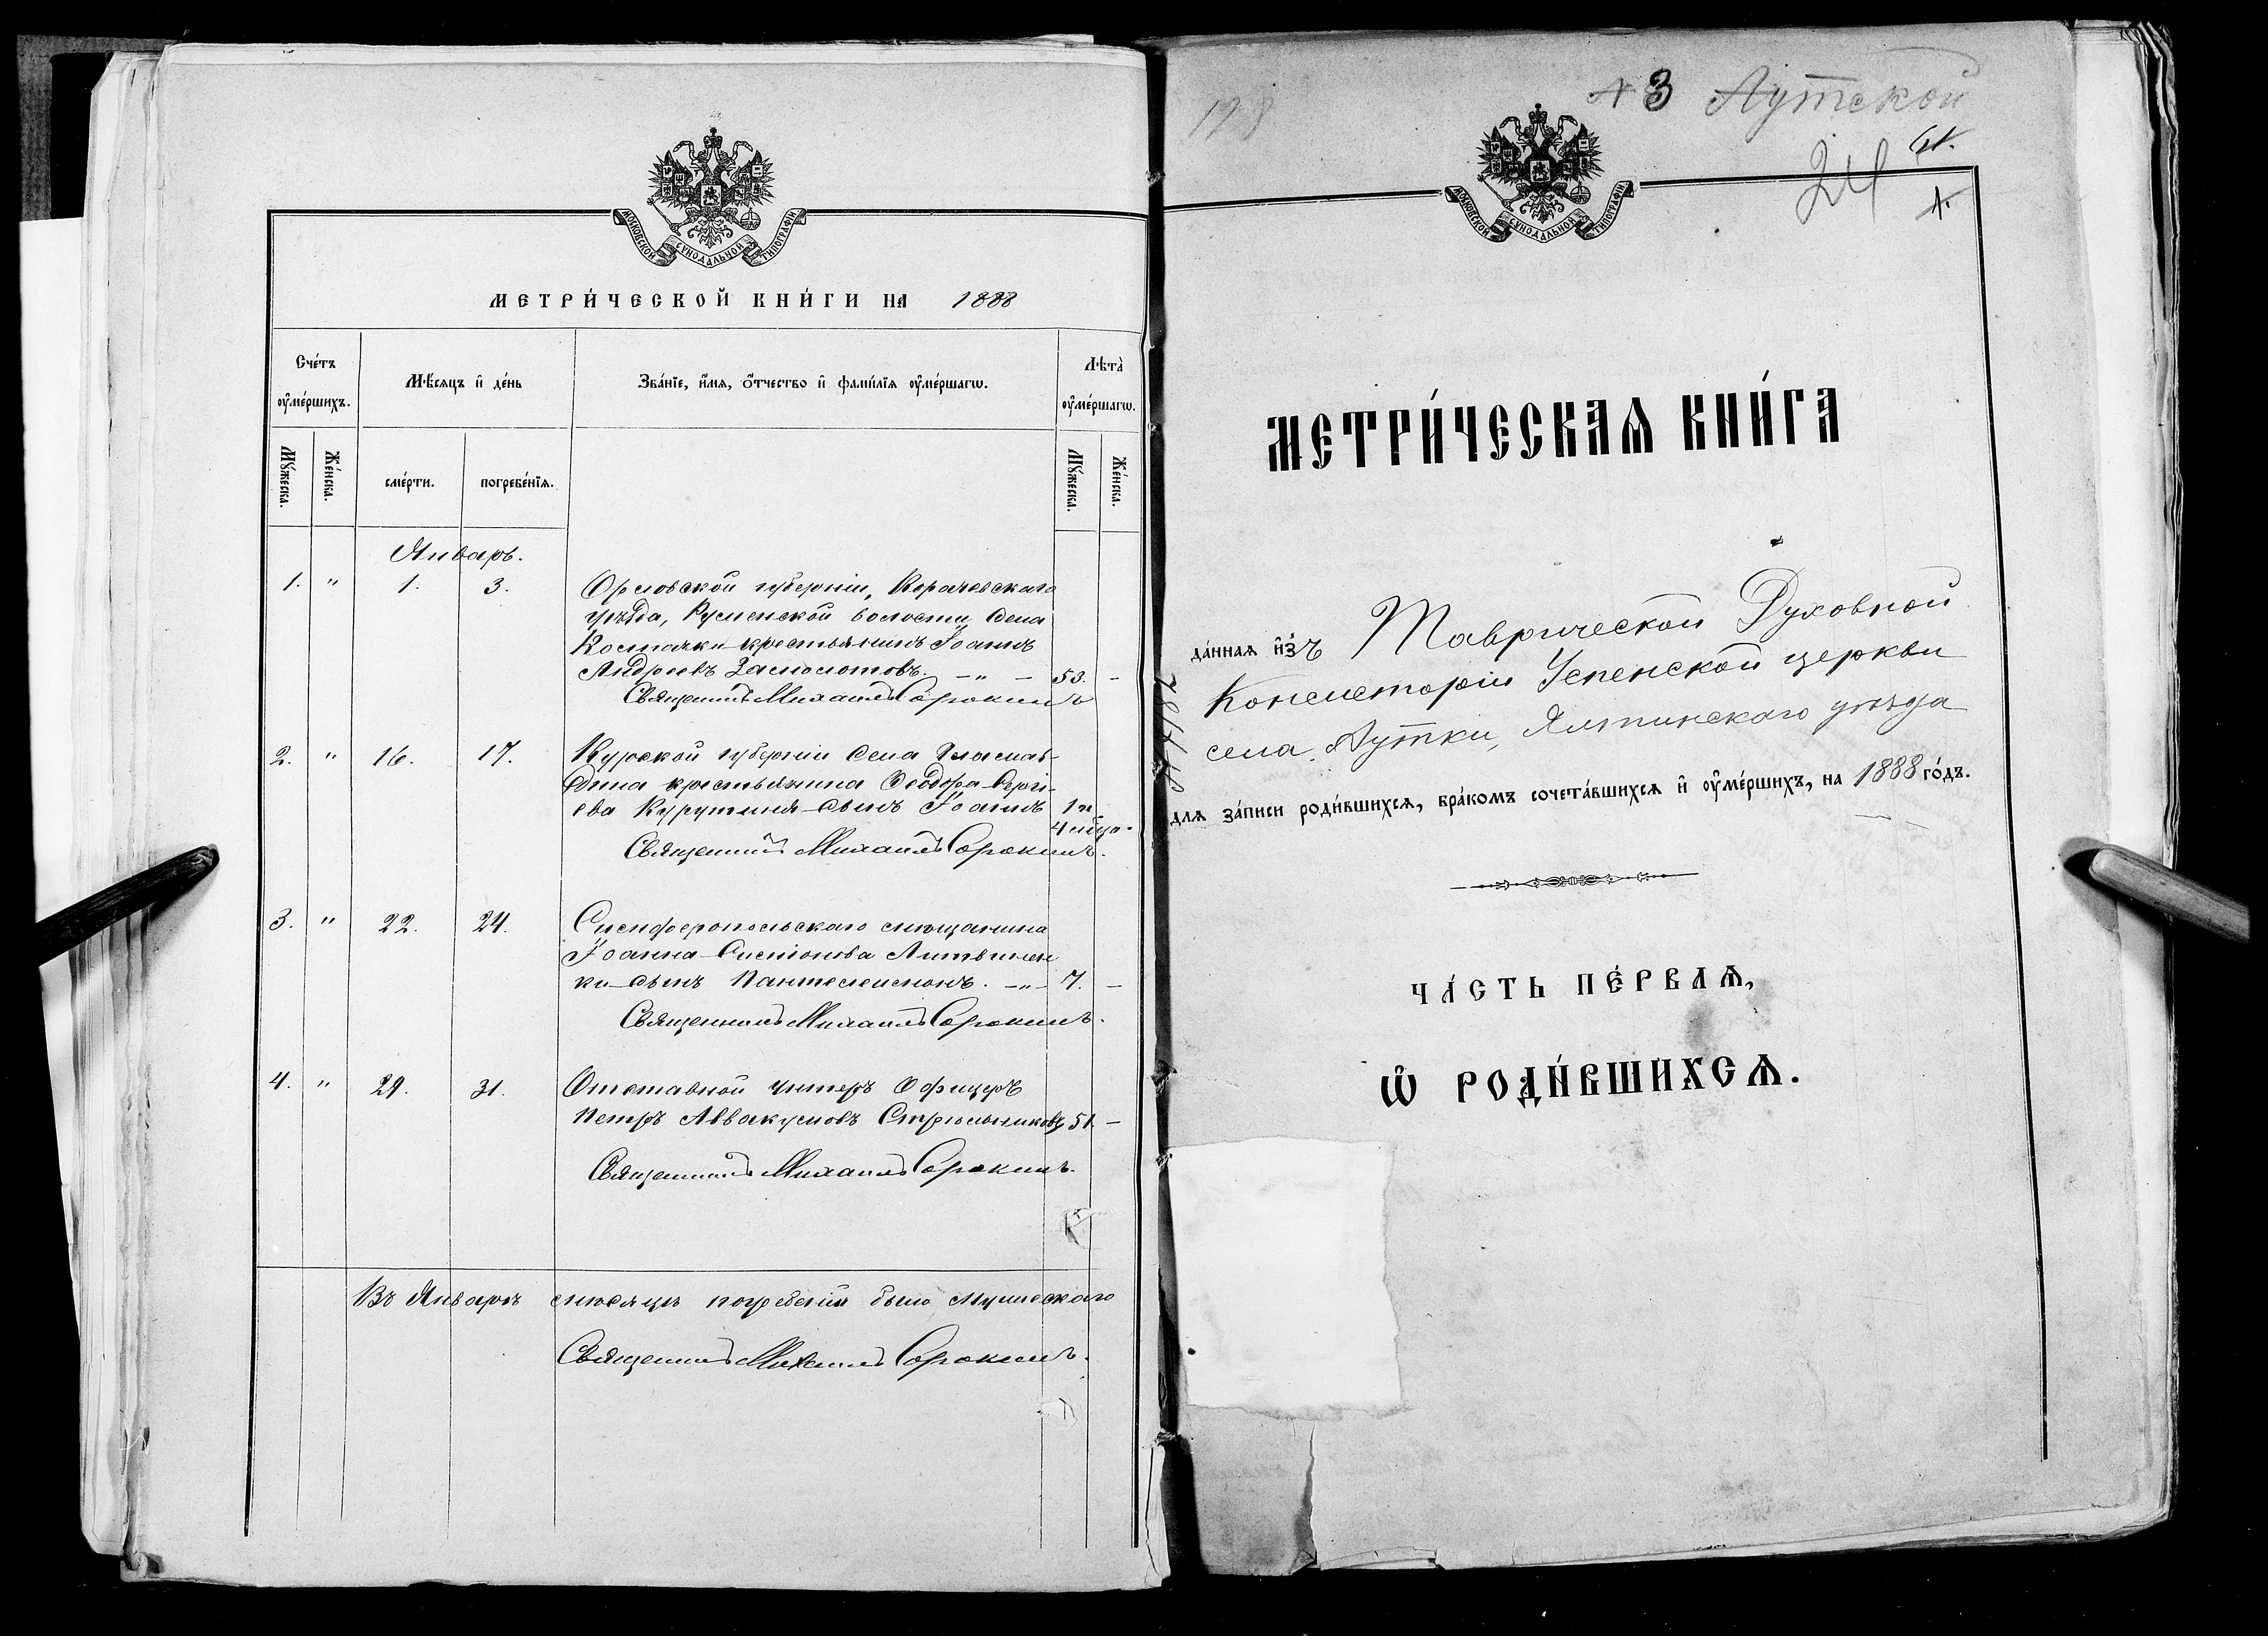 МОСКОВСКОЙ СУНОДАЛЬНОЙ ТИПОГРАФІИ
МЕТРИ́ЧЕСКОЙ КНИ́ГИ НА 1888
Сче́тъ оу҆ме́ршихъ.
Мѣ́сяцъ и҆ де́нь
Зва́нїе, и҆́мѧ, ѻ҆́тчество и҆ фами́лїѧ оу҆ме́ршагѡ.
Лѣта̀ оу҆ме́ршагѡ.
Мꙋ́жеска.
Же́нска.
сме́рти.
погребе́нїѧ.
Мꙋ́жеска.
Же́нска.
Январь.
1. " 1. 3. Орловской губерніи, Корачевскаго
уѣзда, волости, села
Костички крестьянинъ Іоаннъ
Андреевъ — " — 53. —
Священникъ Михаилъ Сорокинъ
2. " 16. 17. Курской губерніи села
крестьянина Ѳеодора Сергі-
ева сынъ Іоаннъ 1 г.
4 мѣсяца
Священникъ Михаилъ Сорокинъ.
3. " 22. 24. Симферопольскаго мѣщанина
Іоанна Симіонова Литвинен
ки сынъ Пантелеимонъ. — " — 7. —
Священникъ Михаилъ Сорокинъ.
4. " 29. 31. Отставной унтеръ Офицеръ
Петръ Аввакумовъ Стрѣльниковъ 51. —
Священникъ Михаилъ Сорокинъ.
Въ Январѣ мѣсяцѣ погребенія было мужескаго
Священникъ Михаилъ Сорокинъ.
198
№ 3 Аутской
24
1.
МОСКОВСКОЙ СУНОДАЛЬНОЙ ТИПОГРАФІИ
МЕТРИ́ЧЕСКАѦ КНИ́ГА
да́ннаѧ и҆зъ Таврической Духовной
Консисторіи Успенской церкви
села Аутки, Ялтинскаго уѣзда
длѧ за́писи роди́вшихсѧ, бра́комъ сочета́вшихсѧ и҆ оу҆ме́ршихъ, на 1888 го́дъ.
ЧА́СТЬ ПЕ́РВАѦ,
Ѡ҆ РОДИ́ВШИХСѦ.